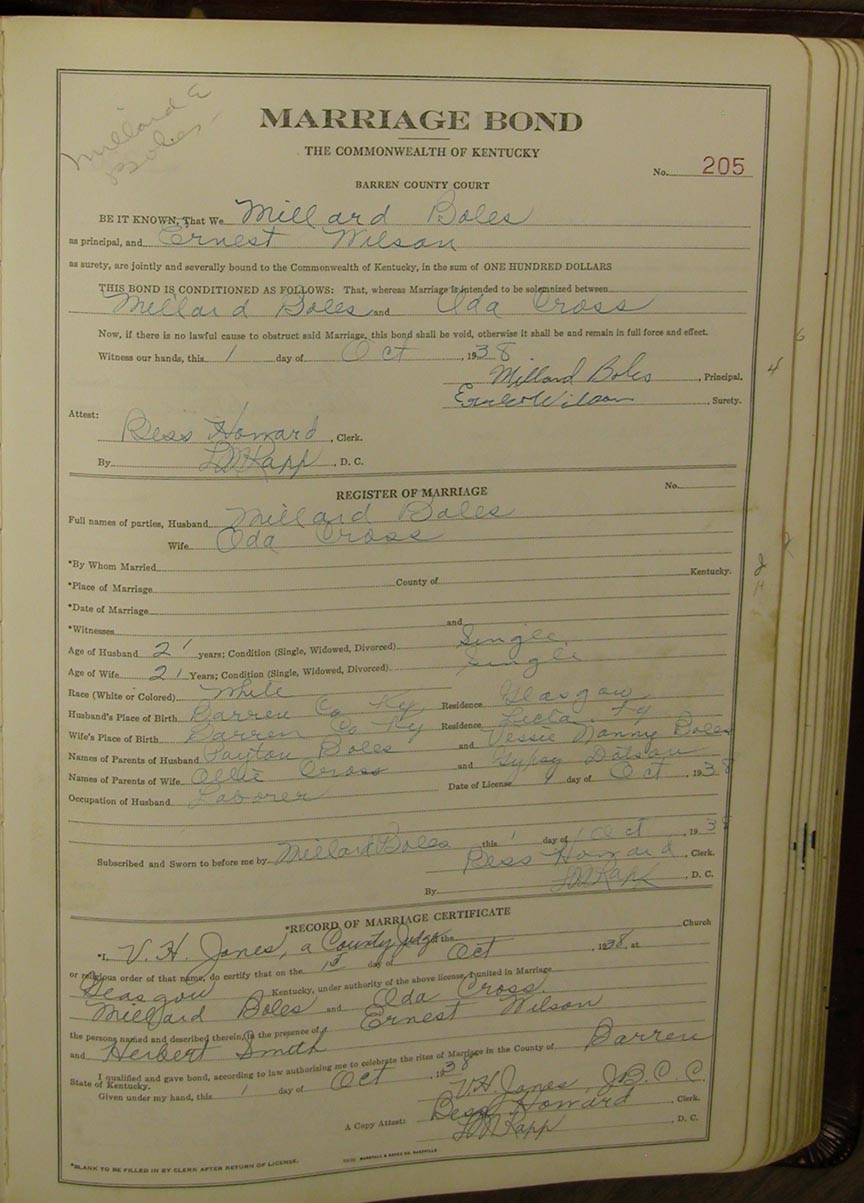 Millard E
Boles
MARRIAGE BOND
THE COMMONWEALTH OF KENTUCKY
No. 205
BARREN COUNTY COURT
BE IT KNOWN, That We Millard Boles
as principal, and Ernest Wilson
as surety, are jointly and severally bound to the Commonwealth of Kentucky, in the sum of ONE HUNDRED DOLLARS
THIS BOND IS CONDITIONED AS FOLLOWS: That, whereas Marriage is intended to be solemnized between
Millard Boles and Oda Cross
Now, if there is no lawful cause to obstruct said Marriage, this bond shall be void, otherwise it shall be and remain in full force and effect.
Witness our hands, this 1 day of Oct, 1938
Millard Boles, Principal.
Ernest Wilson, Surety.
Attest:
Bess Howard, Clerk.
By L M Rapp, D. C.
REGISTER OF MARRIAGE
No.
Full names of parties, Husband Millard Boles
Wife Oda Cross
*By Whom Married
*Place of Marriage County of Kentucky.
*Date of Marriage
*Witnesses and
Age of Husband 21 years; Condition (Single, Widowed, Divorced) Single
Age of Wife 21 Years; Condition (Single, Widowed, Divorced) Single
Race (White or Colored) White
Husband's Place of Birth Barren Co Ky Residence Glasgow
Wife's Place of Birth Barren Co Ky Residence Lecta, Ky
Names of Parents of Husband Payton Boles and Vessie Nanny Boles
Names of Parents of Wife Ollie Cross and Gypsy Dotson
Occupation of Husband Laborer Date of License 1 day of Oct, 1938
Subscribed and Sworn to before me by Millard Boles this 1 day of Oct, 1938
Bess Howard, Clerk.
By L M Rapp, D. C.
*RECORD OF MARRIAGE CERTIFICATE
*I, V. H. Jones, a County Judge of the Church
or religious order of that name, do certify that on the 1st day of Oct, 1938, at
Glasgow Kentucky, under authority of the above license, I united in Marriage
Millard Boles and Oda Cross
the persons named and described therein, in the presence of Ernest Wilson
and Herbert Smith
I qualified and gave bond, according to law authorizing me to celebrate the rites of Marriage in the County of Barren
State of Kentucky.
Given under my hand, this 1 day of Oct, 1938
V. H. Jones, J.B.C.C.
A Copy Attest: Bess Howard Clerk.
L M Rapp D. C.
*BLANK TO BE FILLED IN BY CLERK AFTER RETURN OF LICENSE.